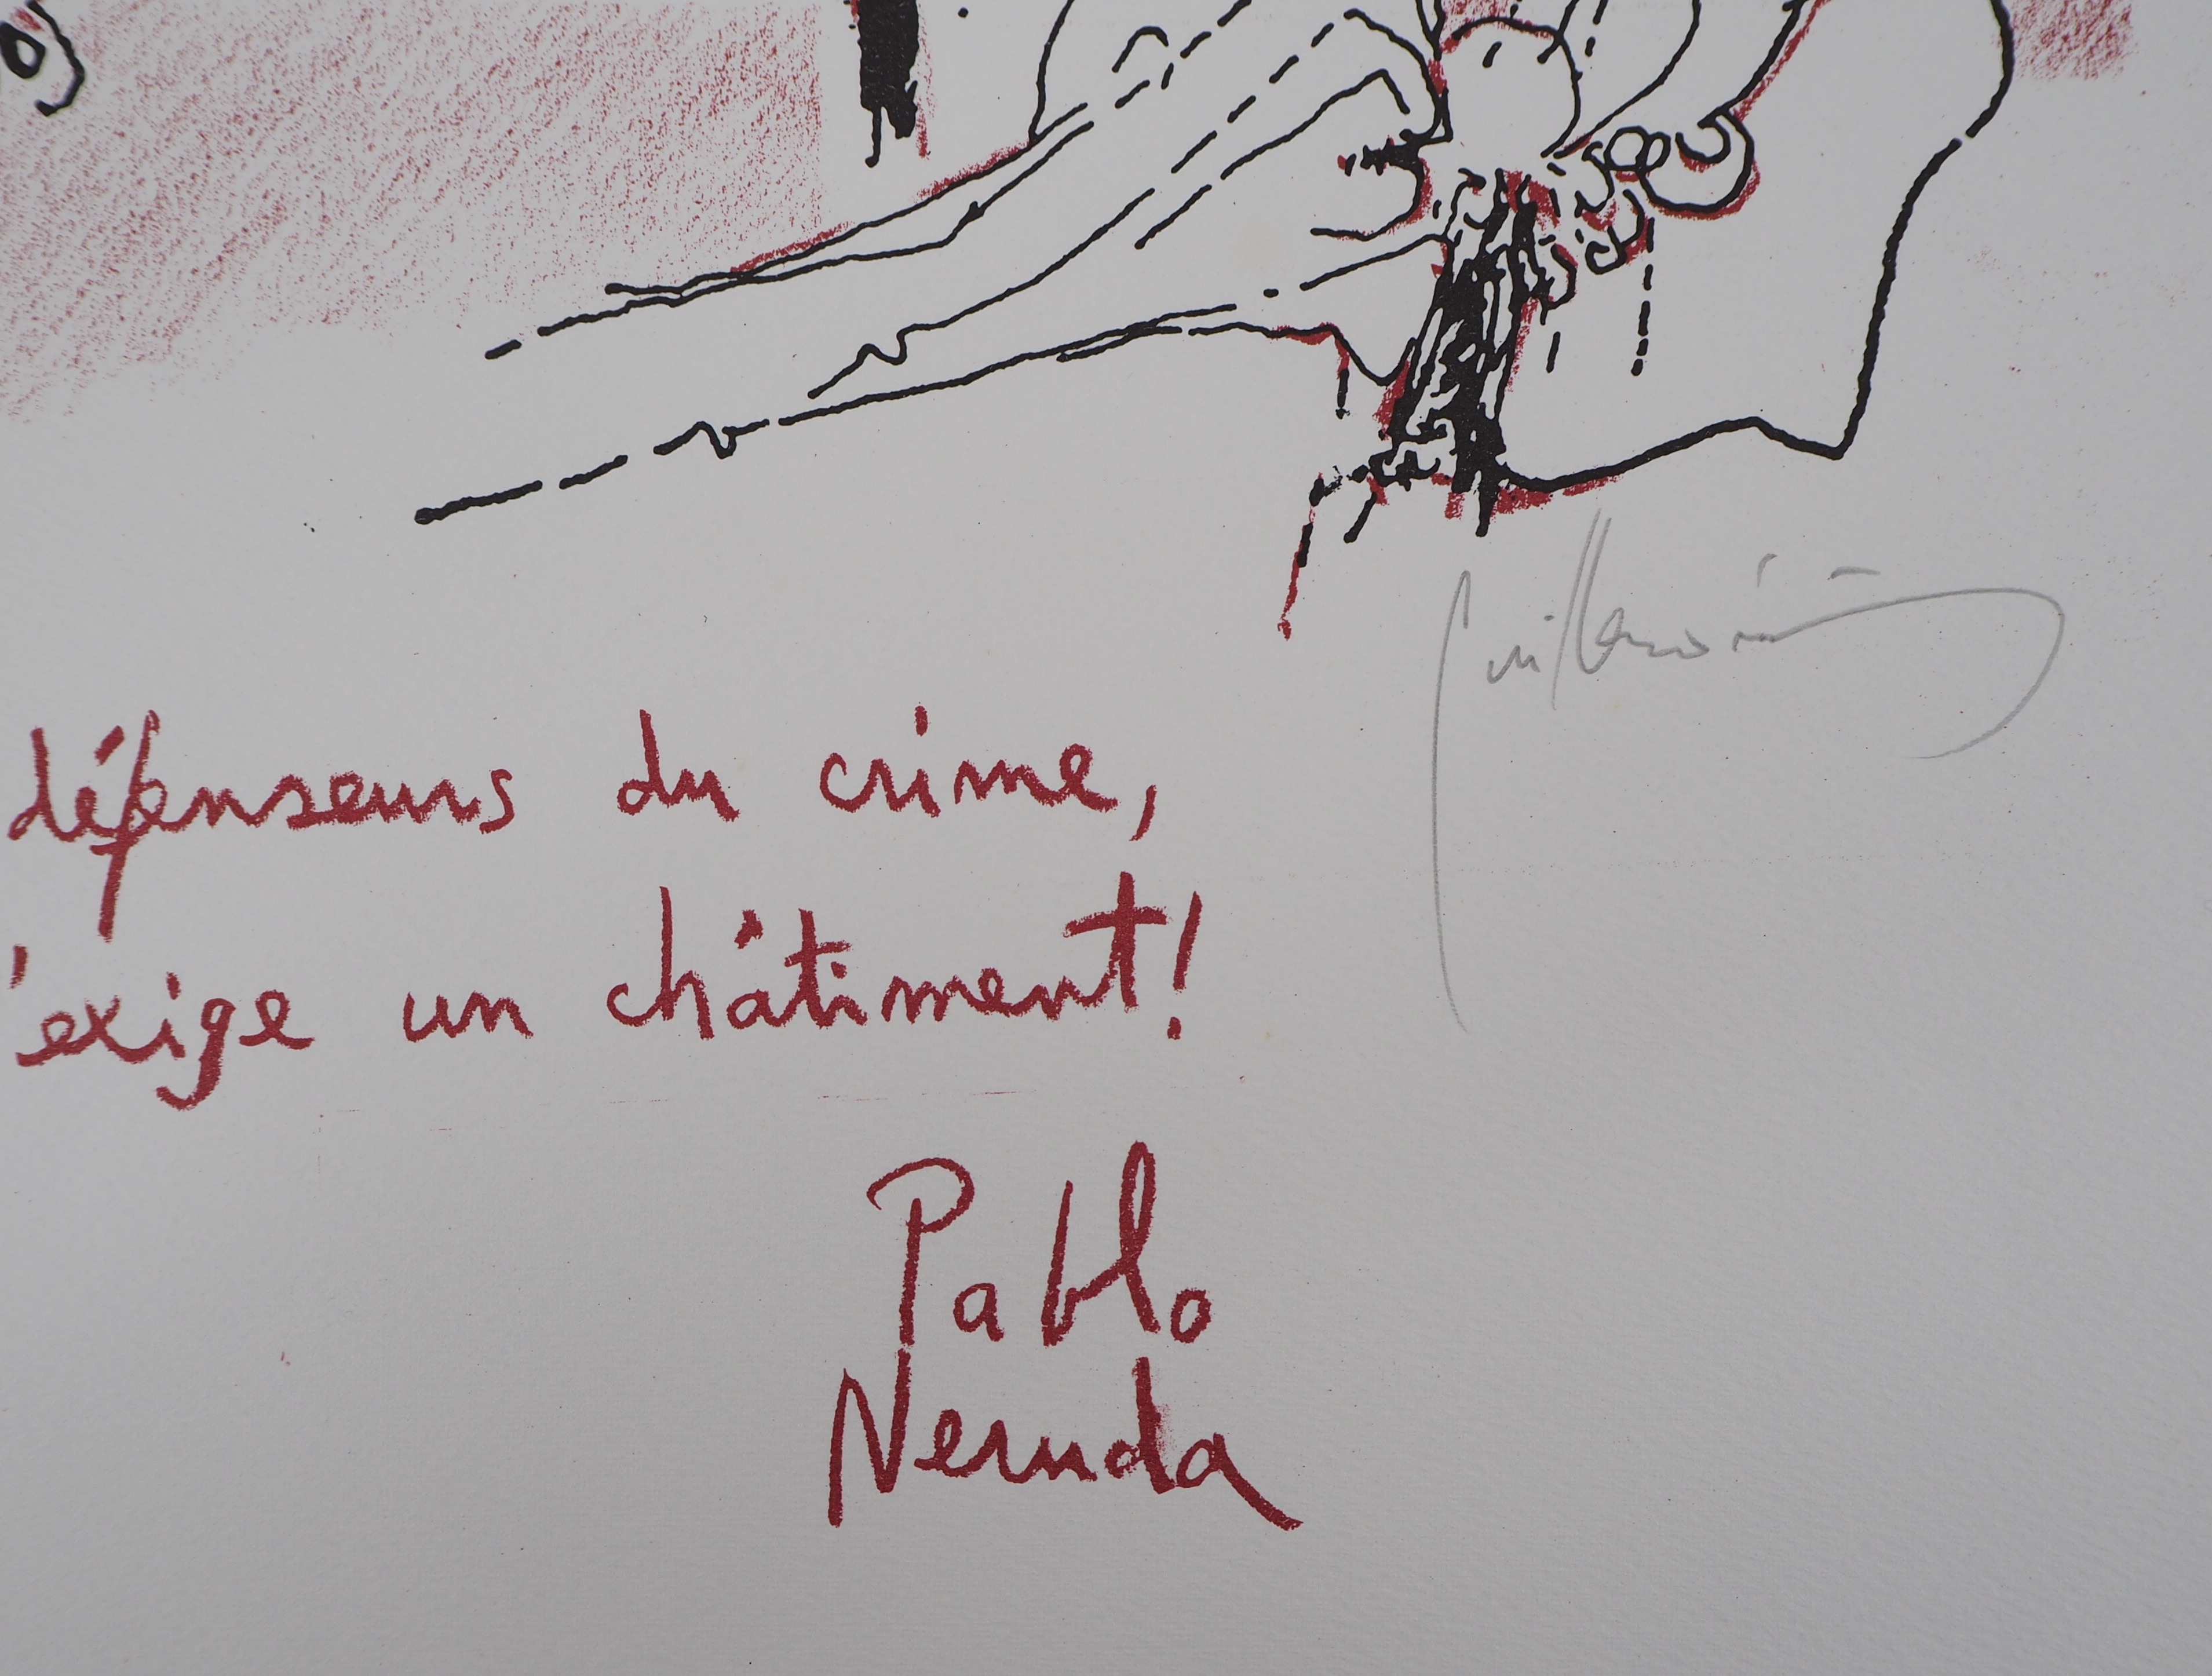 défenseurs du crime,
'exige un châtiment!
Pablo
Neruda